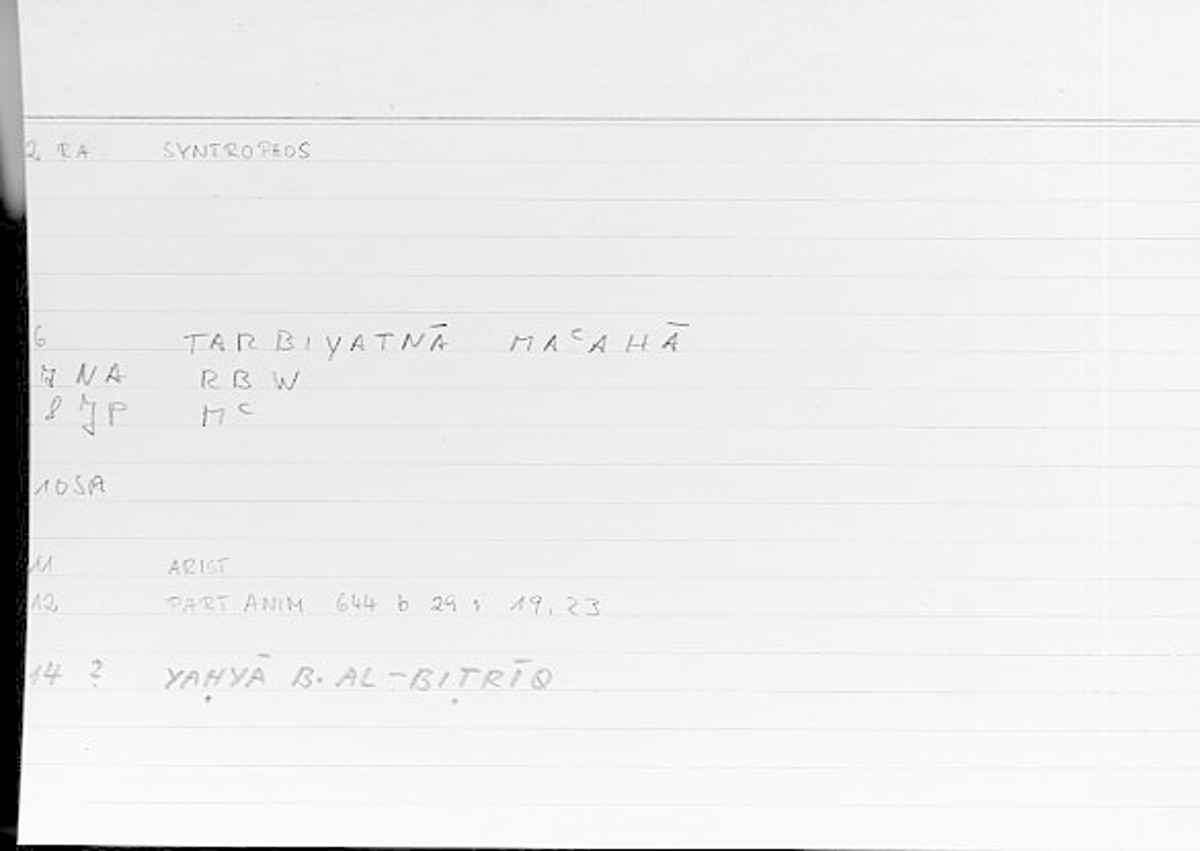 2 RA SYNTROPHOS
6 TARBIYATNĀ MAᶜAHĀ
7 NA RBW
8 JP Mᶜ
10 SA
11 ARIST
12 PART ANIM 644 b 29 : 19,23
14 ? YAḤYĀ B. AL-BIṬRĪQ